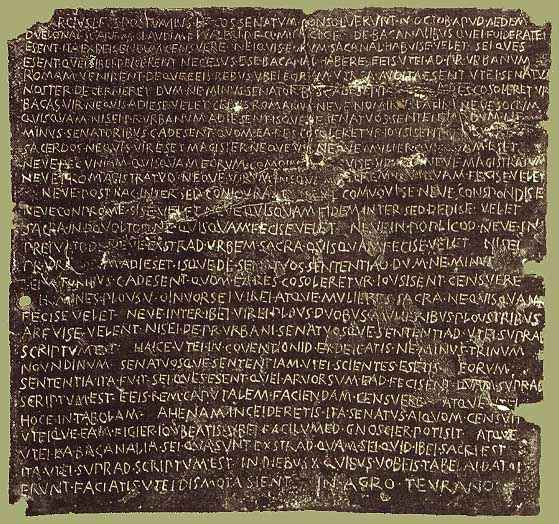 MARCIVS L F S POSTVMIVS L F COS SENATVM CONSOLVERVNT N OCTOB APVD AEDEM
DVELONAI SC ARF M CLAVDI M F L VALERI P F Q MINVCI C F DE BACANALIBVS QVEI FOIDERATEI
ESENT ITA EXDEICENDVM CENSVERE NEIQVIS EORVM SACANAL HABVISE VELET SEI QVES
ESENT QVEI SIBEI DEICERENT NECESVS ESE BACANAL HABERE EEIS VTEI AD PR VRBANVM
ROMAM VENIRENT DEQVE EEIS REBVS VBEI EORVM VTR A AVDITA ESENT VTEI SENATVS
NOSTER DECERNERET DVM NE MINVS SENATORBVS C ADESENT RES COSOLERETVR
BACAS VIR NEQVIS ADIESE VELET CEIVIS ROMANVS NEVE NOMINVS LATINI NEVE SOCIVM
QVISQVAM NISEI PR VRBANVM ADIESENT ISQVE DE SENATVOS SENTENTIAD DVM NE
MINVS SENATORIBVS C ADESENT QVOM EA RES COSOLERETVR IOVSISENT CENSVERE
SACERDOS NEQVIS VIR ESET MAGISTER NEQVE VIR NEQVE MVLIER QVISQVAM ESET
NEVE PECVNIAM QVISQVAM EORVM COMOINEM HABVISE VELET NEVE MAGISTRATVM
NEVE PRO MAGISTRATVO NEQVE VIRVM NEQVE MVLIEREM QVIQVAM FECISE VELET
NEVE POST HAC INTER SED CONIOVRASE NEVE COMVOVISE NEVE CONSPONDISE
NEVE CONPROMESISE VELET NEVE QVISQVAM FIDEM INTER SED DEDISE VELET
SACRA IN OQVOLTOD NE QVISQVAM FECISE VELET NEVE IN POPLICOD NEVE IN
PREIVATOD NEVE EXSTRAD VRBEM SACRA QVISQVAM FECISE VELET NISEI
PR VRBANVM ADIESET ISQVE DE SENATVOS SENTENTIAD DVM NE MINVS
SENATORIBVS C ADESENT QVOM EA RES COSOLERETVR IOVSISENT CENSVERE
HOMINES PLOVS V OINVORSEI VIREI ATQVE MVLIERES SACRA NE QVISQVAM
FECISE VELET NEVE INTER IBEI VIREI PLOVS DVOBVS MVLIERIBVS PLOVS TRIBVS
ARFVISE VELENT NISEI DE PR VRBANI SENATVOSQVE SENTENTIAD VTEI SVPRAD
SCRIPTVM EST HAICE VTEI IN COVENTIONID EXDEICATIS NE MINVS TRINVM
NOVNDINVM SENATVOSQVE SENTENTIAM VTEI SCIENTES ESETIS EORVM
SENTENTIA ITA FVIT SEI QVES ESENT QVEI ARVORSVM EAD FECISENT QVAM SVPRAD
SCRIPTVM EST EEIS REM CAPVTALEM FACIENDAM CENSVERE ATQVE VTEI
HOCE IN TABOLAM AHENAM INCEIDERETIS ITA SENATVS AIQVOM CENSVIT
VTEIQVE EAM FIGIER IOVBEATIS VBEI FACILVMED GNOSCIER POTISIT ATQVE
VTEI EA BACANALIA SEI QVA SVNT EXSTRAD QVAM SEI QVID IBEI SACRI EST
ITA VTEI SVPRAD SCRIPTVM EST IN DIEBVS X QVIBVS VOBEIS TABELAI DATAI
ERVNT FACIATIS VTEI DISMOTA SIENT IN AGRO TEVRANO